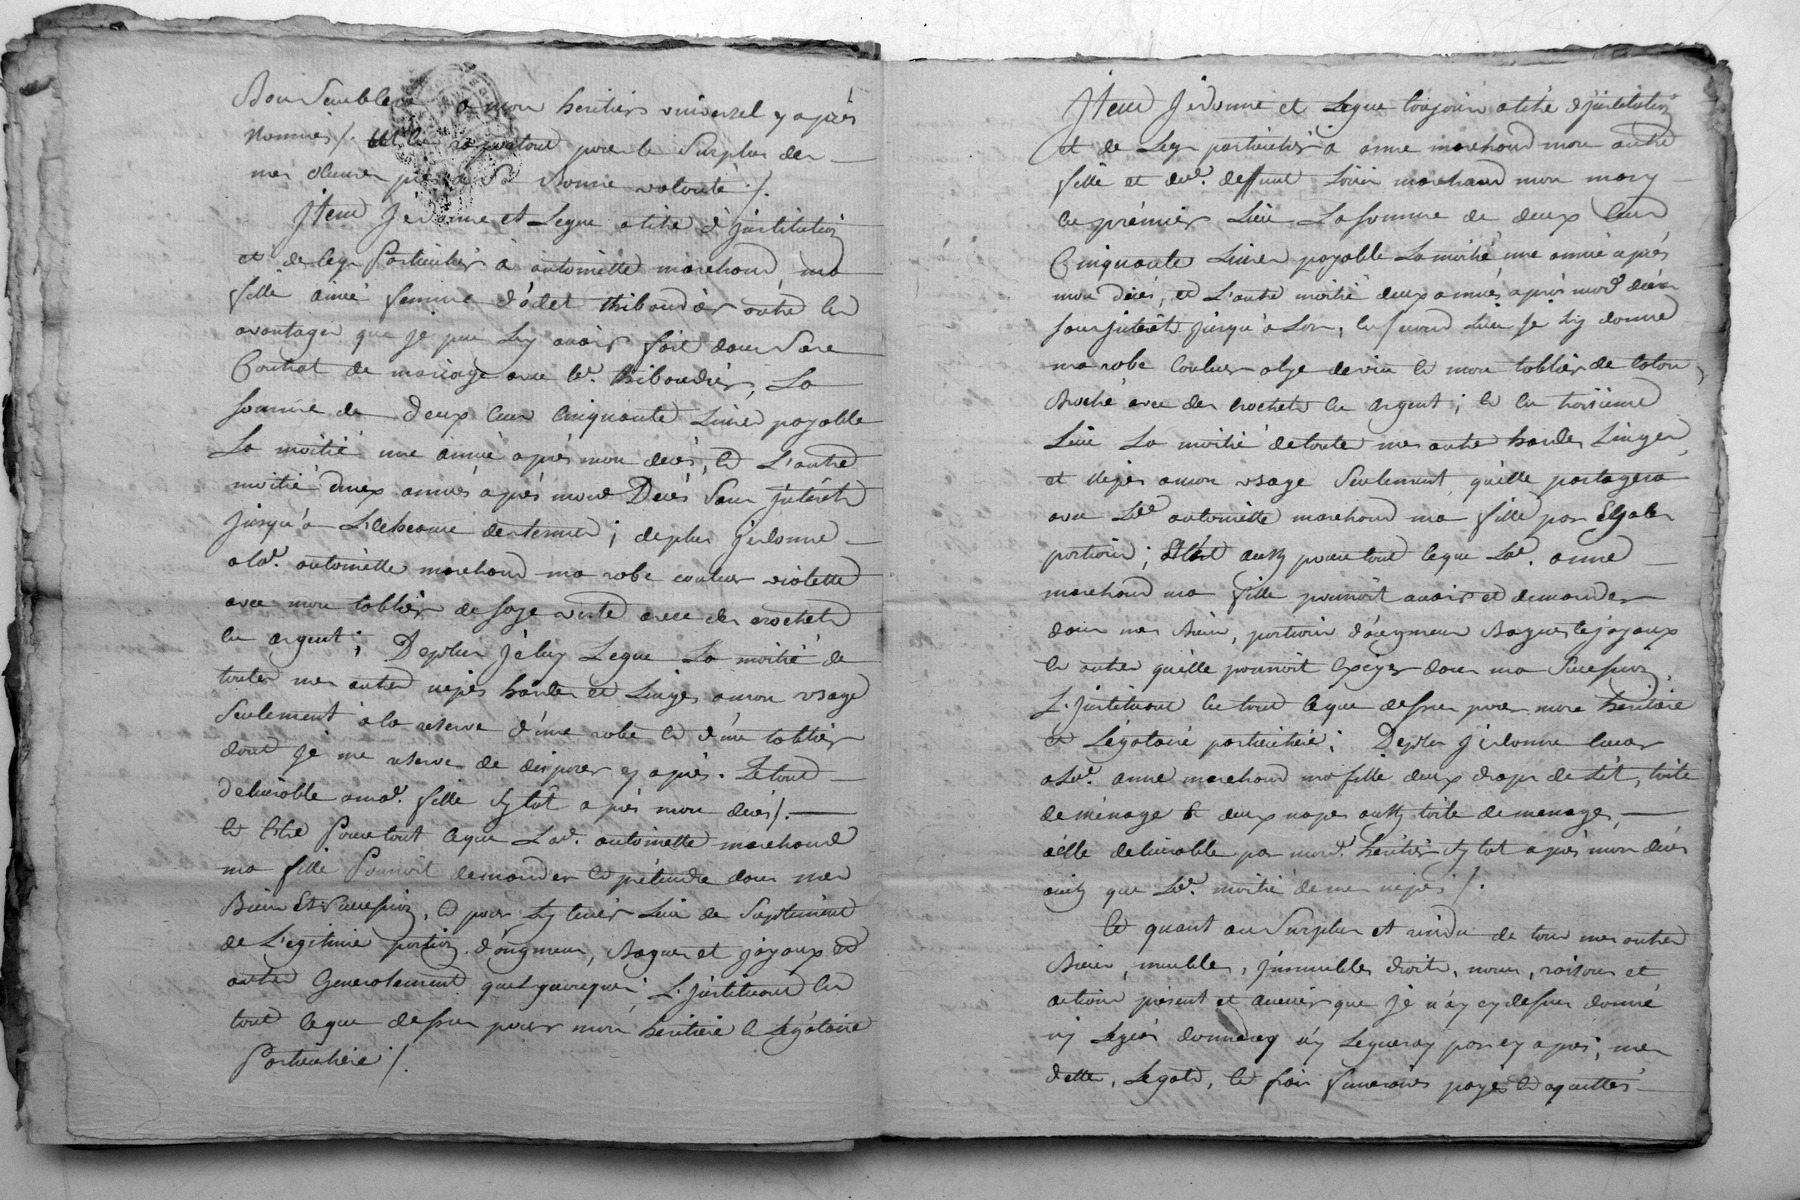 Bon Semblera a mon heritier universel y après
Nommé /. m'en raportant pour le Surplus de
mes obseues à Sa Bonne volonté /.
Jtem Je donne et Legue a titre d'jnstitution
et de legs Particulier à antoinette marchand ma
fille ainée femme d'odet thibaudier outre les
avantages que je puis Luy avoir fait dans Son
Contrat de mariage avec led. thibaudier, La
somme de Deux Cens Cinquante Livres payable
La moitié une année après mon decés, et L'autre
moitié deux années après mond Decés Sans jnterets
jusqu'a L'echeance des termes ; de plus je donne
a lad. antoinette marchand ma robe couleur violette
avec mon tablier de soye verte avec des crochets
en argent ; De plus je luy Legue La moitié de
toutes mes autres nipes hardes et Linges a mon usage
Seulement à la reserve d'une robe et d'un tablier
dont je me reserve de disposer cy après. Le tout
delivrable a mad. fille sy tôt après mon decés /.
et C'est Pour tout ce que Lad. antoinette marchand
ma fille Pourroit demander et prétendre dans mes
Biens Et Succession, et pour Luy tenir Lieu de Suplement
de L'egitime portion d'augment, Bagues et joyaux et
autres Generalement quelquonques ; L'jnstituant en
tout ce que dessus pour mon heritiere et Légataire
Particuliere /.
Jtem Je donne et Legue toujours a titre d'jnstitution
et de Legs particulier à anne marchand mon autre
fille et dud. deffunt Louis marchand mon mary
en prémier Lieu La somme de deux Cens
Cinquante Livres payable La moitié une année après
mon decés, et L'autre moitié deux années après mond decés
sans jnterêts jusqu'a Lors, en second Lieu je Luy donne
ma robe Couleur et mon tablier de coton
Broché avec des crochets en argent ; et en troisieme
Lieu La moitié de toute mes autre hardes Linges
et Nipes a mon usage Seulement, qu'elle partagera
avec Lad. antoinette marchand ma fille par Egales
portions ; Et c'est aussy pour tout ce que Lad. anne
marchand ma fille pourroit avoir et demander
dans mes Biens, portion d'augment Bagues et joyaux
et autres qu'elle pourroit Exiger dans ma Succession,
L'jnstituant en tout ce que dessus pour mon heritiere
et Légataire particuliere ; De plus je donne encor
a Lad. anne marchand ma fille deux draps de Lit, toile
de ménage & deux napes aussy toile de menage,
à elle delivrable par mond. heritier sy tot après mon decés
ainsy que Lad. moitié de mes nipes /.
Et quant au Surplus et residu de tous mes autres
Biens, meubles, jmmeubles droits, noms, raisons et
actions present et avenir que je n'ay cy dessus donné
ny Legués donneray n'y Legueray par cy apres, mes
dettes, Legats, et frais funeraires payés et aquittés